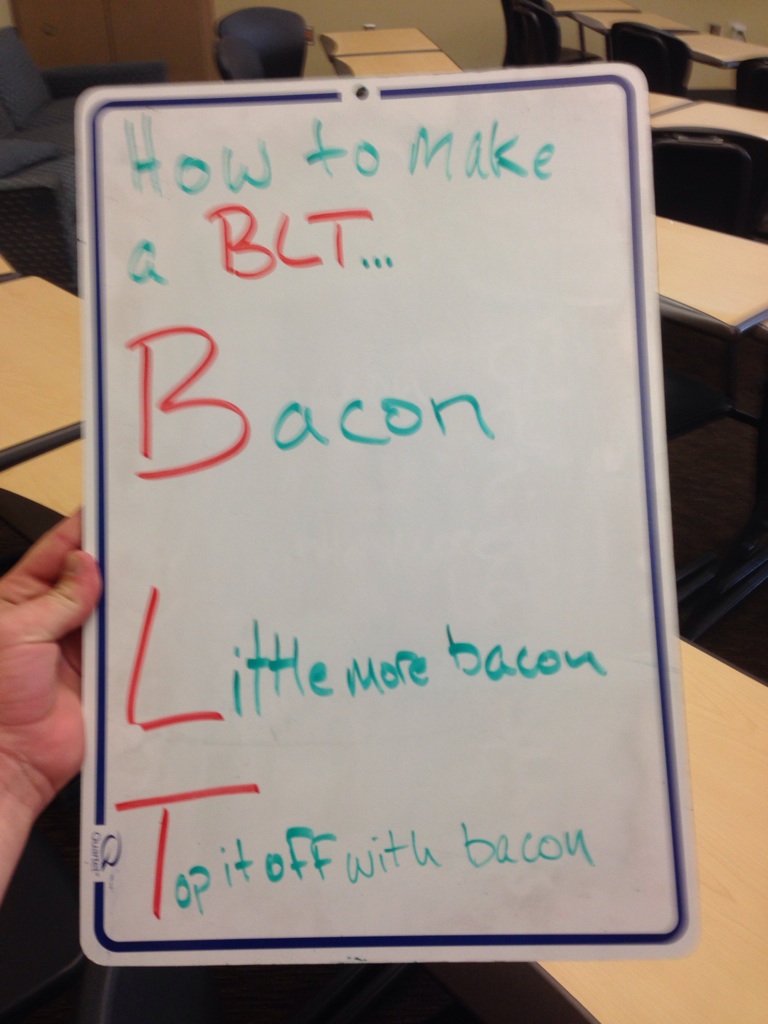 How to make
a BLT...
Bacon
Little more bacon
Top it off with bacon
Quartet